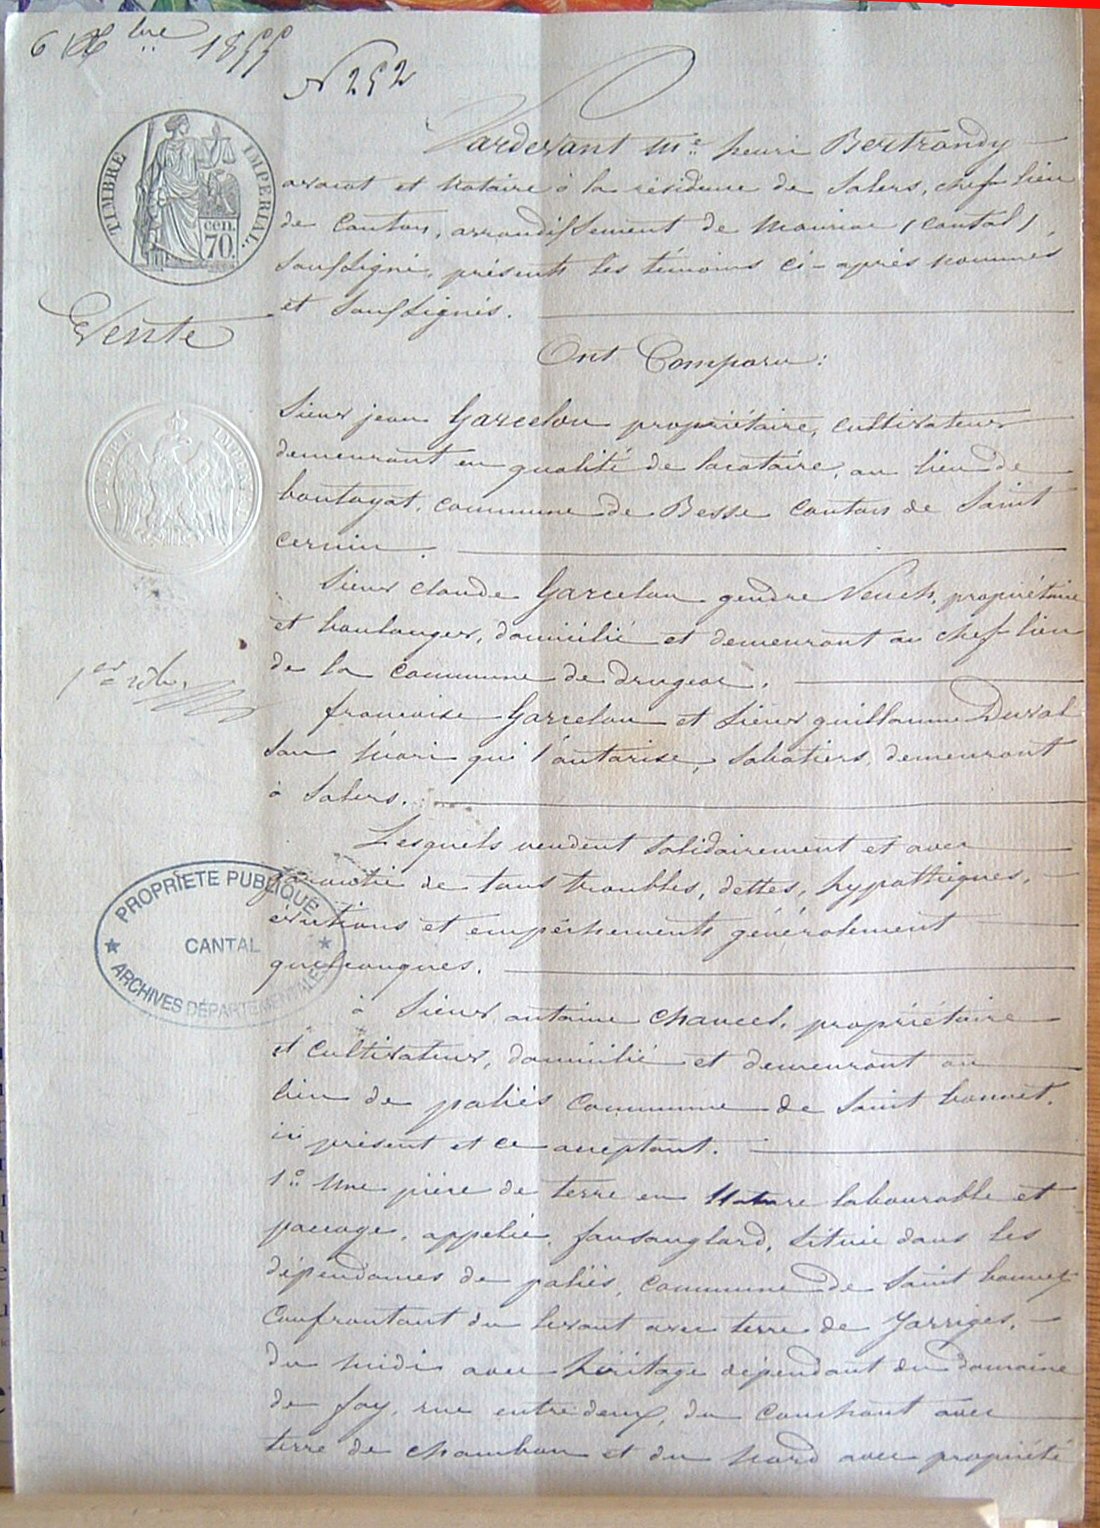 6 Xbre 1855
N 252
TIMBRE IMPERIAL
cen.
70.
Pardevant Me henri Bertrandy
avocat et notaire à la résidence de Salers, chef lieu
de canton, arrondissement de Mauriac (cantal),
soussigné, présents les témoins ci-après nommés
et soussignés.
Vente
Ont Comparu:
Sieur jean Garcelon propriétaire, cultivateur
demeurant en qualité de locataire, au lieu de
boutayat, commune de Besse canton de Saint
cernin.
Sieur claude Garcelon gendre Veuch, propriétaire
et boulanger, domicilié et demeurant au chef lieu
de la commune de drugeac.
1er rôle
francoise Garcelon et Sieur guillaume Duval
son mari qui l'autorise, sabotiers, demeurant
à Salers.
Lesquels vendent solidairement et avec
garantie de tous troubles, dettes, hypothèques,
évictions et empêchements généralement
quelconques.
PROPRIÉTÉ PUBLIQUE
CANTAL
ARCHIVES DÉPARTEMENTALES
à Sieur antoine chancel, propriétaire
et cultivateur, domicilié et demeurant au
lieu de paliès commune de Saint bonnet.
ici présent et ce acceptant.
1o une pièce de terre en Nature labourable et
pacage, appelée, fansanglard, située dans les
dépendances de paliès, commune de Saint bonnet
Confrontant du levant avec terre de Jarriges,
du midi avec héritage dépendant du domaine
de fay, rue entre deux, du couchant avec
terre de chambon et du nord avec propriété